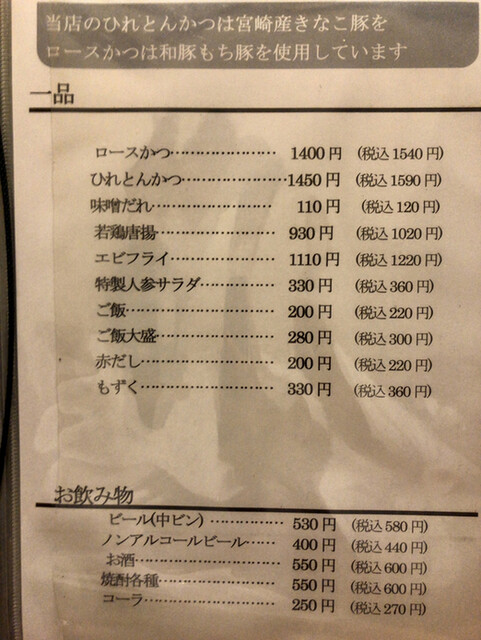 当店のひれとんかつは宮崎産きなこ豚を
ロースかつは和豚もち豚を使用しています
一品
ロースかつ……………………… 1400円 (税込1540円)
ひれとんかつ………………………1450円 (税込1590円)
味噌だれ……………………… 110円 (税込120円)
若鶏唐揚……………………… 930円 (税込1020円)
エビフライ……………………… 1110円 (税込1220円)
特製人参サラダ……………… 330円 (税込360円)
ご飯……………………………… 200円 (税込220円)
ご飯大盛……………………… 280円 (税込300円)
赤だし………………………… 200円 (税込220円)
もずく………………………… 330円 (税込360円)
お飲み物
ビール(中ビン) ……………… 530円 (税込580円)
ノンアルコールビール…… 400円 (税込440円)
お酒…………………………… 550円 (税込600円)
焼酎各種……………………… 550円 (税込600円)
コーラ………………………… 250円 (税込270円)